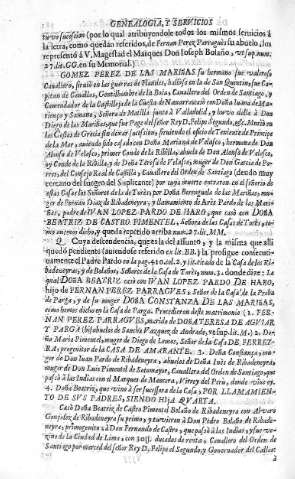 GENEALOGIA, Y SERVICIOS
tuvo sucession (por lo qual atribuyendole todos los mismos servicios à
la letra, como quedan referidos, de Fernan Perez Parragues su abuelo, los
representò à V. Magestad el Marques Don Joseph Bolaño,
27. lit. GG. en su Memorial.)
GOMEZ PEREZ DE LAS MARIÑAS su hermano fue valeroso
Cavallero, sirviò en las guerras de Flandes, hallòse en la de San Quintin, fue Ca-
pitan de Cavallos, Gentilhombre de la Boca, Cavallero del Orden de Santiago, y
Comendador de la Castilleja de la Cuesta de
y Somanes, Señora de Matilla junto à Valladolid, y tuvo dellà à Don
Diego de las Mariñas, que fue Page del señor Rey D. Felipe Segundo,
las Costas de Grecia
de la Mar, aviendo sido casado con Doña Mariana de Velasco, hermana de Don
Alonso de Velasco, primer Conde de la Rebilla, abuelo de Don Alonso de Velasco,
y Conde de la Rebilla, y de Doña Teresa de Velasco, muger de Don Garcia de Por-
res, del Consejo Real de Castilla, Cavallero del Orden de Santiago (deudo muy
cercano del suegro del Suplicante) por cuya muerte entraron en el señorio de
estas Casas los Señores de la de Torès, por Doña Berenguela de las Mariñas, mu-
ger de Fernan Diaz de Ribadeneyra, y llamamiento de Arte Pardo de las Mari-
ñas, padre de IVAN LOPEZ PARDO DE HARO, que casò con DOÑA
BEATRIZ DE CASTRO PIMENTEL, Señora de las Casas de Torès, co-
mo menos dicho, y queda repetido arriba num. 27. lit. MM.
Q. Cuya descendencia, que es la del assumpto, y la misma que alli
quedò pendiente (aviendose referido en lit. BB.) la prosigue consecuti-
vamente el Padre Pardo en la pag. 40. col. 2. y siguientes, de la Casa de los Ri-
badeneyras, y de Bolaños, Señores de la Casa de Torès, num. 3. donde dize: La
qual DOÑA BEATRIZ casò con IVAN LOPEZ PARDO DE HARO,
hijo de FERNAN PEREZ PARRAGVES, Señor de la Casa de la Peña
de Parga, y de su muger DOÑA CONSTANZA DE LAS MARIÑAS,
como hemos dicho en la Casa de Parga. Procedieron deste matrimonio (1. FER-
NAN PEREZ PARRAGVES, marido de DOÑA TERESA DE AGVIAR
Y PARGA (hija de Sancho Vazquez de Andrade, ut supr. lit. M.) 2. Do-
ña Maria Pimentel, muger de Diego de Lemos, Señor de la Casa DE FERREY-
RA, progenitor de la CASA DE AMARANTE. 3. Doña Constanza, mu-
ger de Don Juan Pardo de Ribadeneyra, abuelos de Doña Luisa de Ribadeneyra
muger de Don Luis Pimentel de Sotomayor, Cavallero del Orden de Santiago, que
passò à las Indias con el Marques de Mancera, Virrey del Perù, donde vive oy.
4. Doña Beatriz, que vino à ser sucessora de la Casa, POR LLAMAMIEN-
TO DE SVS PADRES, SIENDO HIJA QVARTA.
Casò Doña Beatriz de Castro Pimentel Bolaño de Ribadeneyra con Alvaro
Gonzalez de Ribadeneyra su primo, y tuvieron à Don Pedro Bolaño de Ribade-
neyra, primogenito, à Don Fernando de Castro, que passò à las Indias, y fue ve-
zino de la Ciudad de Lima, con 30U. ducados de renta, Cavallero del Orden de
Santiago por merced del señor Rey D. Felipe Segundo, y Governador del Callao:
à